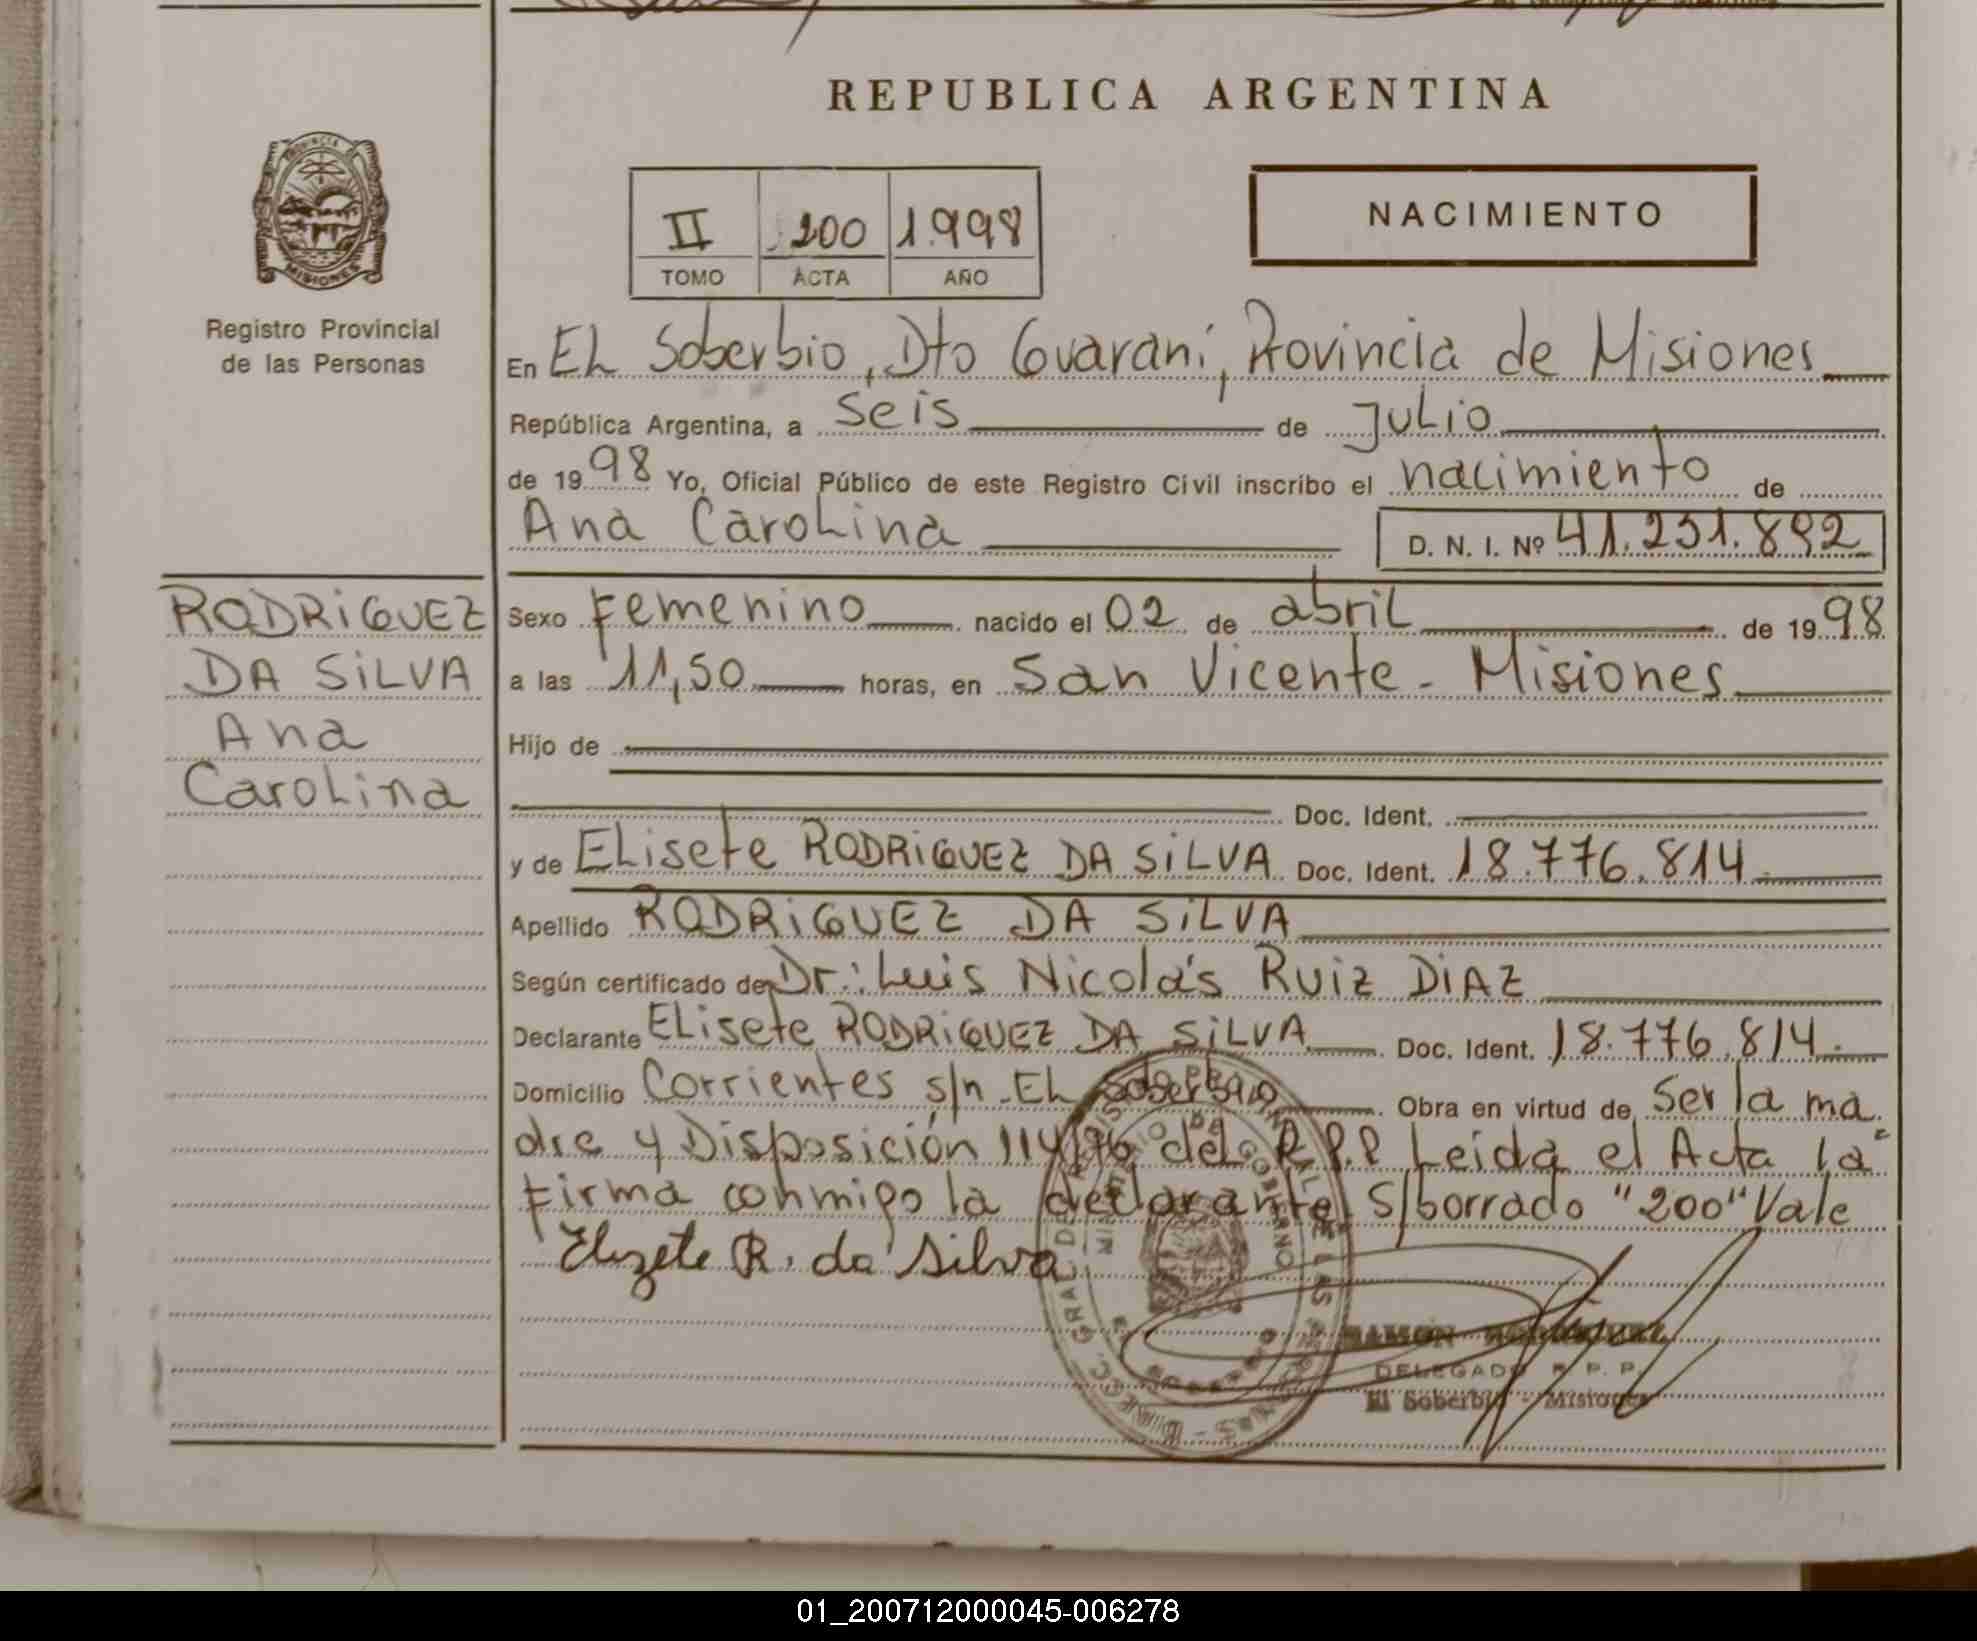 REPUBLICA ARGENTINA
PROVINCIA DE
MISIONES
Registro Provincial
de las Personas
II 200 1.998
TOMO ACTA AÑO
NACIMIENTO
En EL Soberbio, Dto Guaraní, Provincia de Misiones
República Argentina, a seis de Julio
de 1998 Yo, Oficial Público de este Registro Civil inscribo el nacimiento de
Ana Carolina D. N. I. Nº 41.231.892
RODRiGUEZ
DA SiLVA
Ana
Carolina
Sexo Femenino nacido el 02 de abril de 1998
a las 11,50 horas, en San Vicente - Misiones
Hijo de
Doc. Ident.
y de ELisete RODRiGUEZ DA SiLVA Doc. Ident. 18.776.814
Apellido RODRiGUEZ DA SiLVA
Según certificado de Dr.: Luis Nicolás RUiZ DiAZ
Declarante ELisete RODRiGUEZ DA SiLVA Doc. Ident. 18.776.814.
Domicilio Corrientes s/n - EL Soberbio Obra en virtud de ser la ma
dre y Disposición 114/96 del R.P.P Leida el Acta la
firma conmigo la declarante S/borrado "200" Vale
Elizete R. da Silva
RAMÓN
DELEGADO R. P. P.
El Soberbio - Misiones
01_200712000045-006278